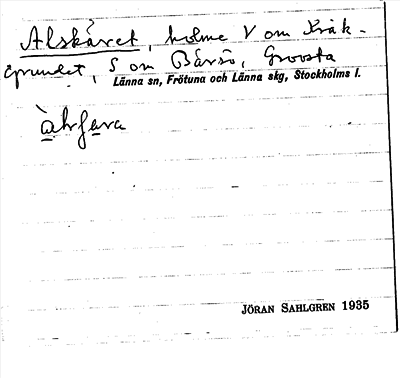 Alskäret, holme V om Kråk-
grundet, S om Bårsö, Grovsta
Länna sn, Frötuna och Länna skg, Stockholms l.
JÖRAN SAHLGREN 1935